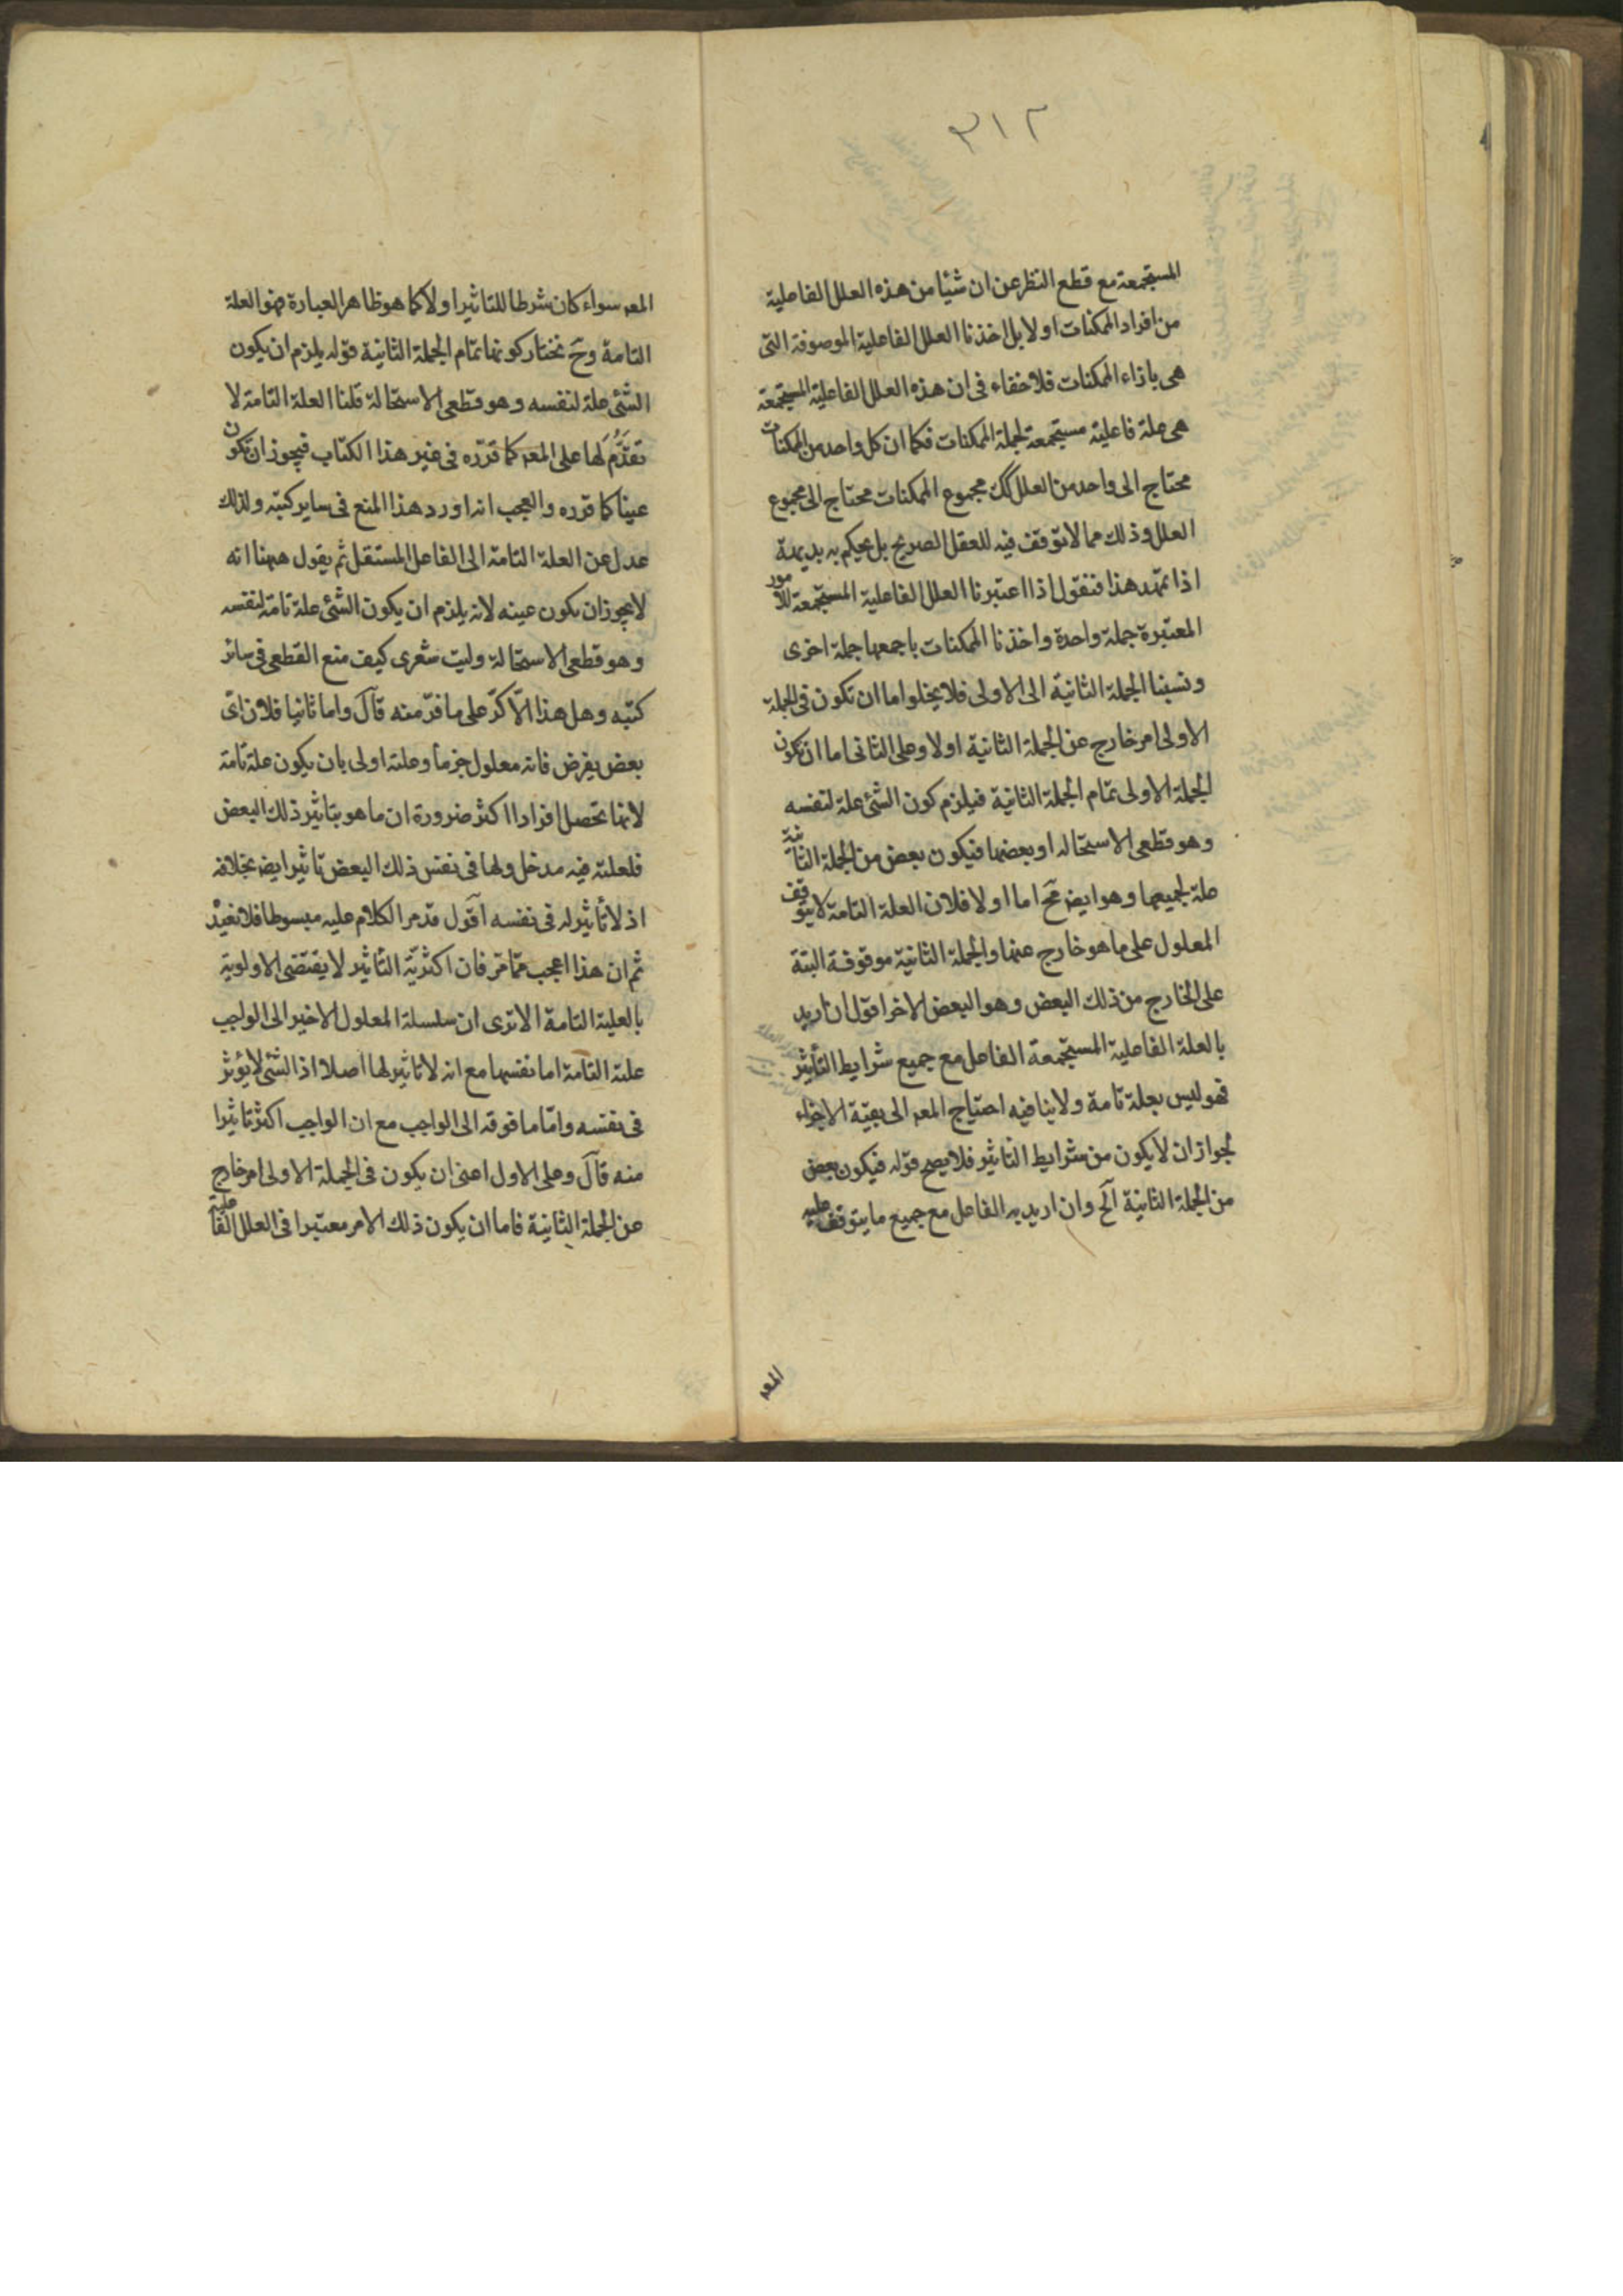 ٣١٢
المستجمعة مع قطع النظر عن ان شيئا من هذه العلل الفاعلية
من افراد الممكنات او لا بل اخذنا العلل الفاعلية الموصوفة التى
هى بازاء الممكنات فلا خفاء فى ان هذه العلل الفاعلية المستجمعة
هى علة فاعلية مستجمعة لجملة الممكنات فكما ان كل واحد من الممكنات
محتاج الى واحد من العلل كك مجموع الممكنات محتاج الى مجموع
العلل وذلك مما لا يتوقف فيه للعقل الصريح بل يحكم به بديهة
اذا تمهد هذا فنقول اذا اعتبرنا العلل الفاعلية المستجمعة للامور
المعتبرة جملة واحدة واخذنا الممكنات باجمعها جملة اخرى
ونسبنا الجملة الثانية الى الاولى فلا يخلوا ما ان تكون فى الجملة
الاولى امر خارج عن الجملة الثانية او لا وعلى الثانى اما ان تكون
الجملة الاولى تمام الجملة الثانية فيلزم كون الشئ علة لنفسه
وهو قطعى الاستحاله او بعضها فيكون بعض من الجملة الثانية
علة لجميعها وهو ايض مح اما اولا فلان العلة التامة لا يتوقف
المعلول على ما هو خارج عنها والجملة الثانية موقوفة البتة
على الخارج من ذلك البعض وهو البعض الاخر اقول ان اريد
بالعلة الفاعلية المستجمعة الفاعل مع جميع شرايط التأثير
فهو ليس بعلة تامة ولا ينافيه احتياج المعه الى بقية الاجزاء
لجواز ان لا يكون من شرايط التاثير فلا يصح قوله فيكون بعض
من الجملة الثانية آلخ وان اريد به الفاعل مع جميع ما يتوقف عليه
المعه
المعه سواء كان شرطا للتاثير او لا كما هو ظاهر العبارة فهو العلة
التامة وح نختار كونها تمام الجملة الثانية قوله يلزم ان يكون
الشئ علة لنفسه وهو قطعى الاستحالة قلنا العلة التامة لا
تقدم لها على المعه كما قرره فى غير هذا الكتاب فيجوز ان تكون
عينا كما قرره والعجب انه اورد هذا المنع فى ساير كتبه ولذلك
عدل عن العلة التامة الى الفاعل المستقل ثم يقول ههنا انه
لا يجوز ان يكون عينه لانه يلزم ان يكون الشئ علة تامة لنفسه
وهو قطعى الاستحالة وليت شعرى كيف منع القطعى فى سائر
كتبه وهل هذا الّا كرّ على ما فرّ منه قآل واما ثانيا فلان اىّ
بعض يفرض فانه معلول جزما وعلته اولى بان يكون علة تامة
لانها تحصل افرادا اكثر ضرورة ان ما هو بتاثير ذلك البعض
فلعلته فيه مدخل ولها فى نفس ذلك البعض تاثير ايض بخلافه
اذ لا تأثير له فى نفسه اقول قد مر الكلام عليه مبسوطا فلا نعيد
ثم ان هذا اعجب ممّا مر فان اكثريّة التأثير لا يقتضى الاولوية
بالعلية التامة الا ترى ان سلسلة المعلول الاخير الى الواجب
علته التامة اما نفسها مع انه لا تاثير لها اصلا اذ الشئ لا يؤثر
فى نفسه وامّا ما فوقه الى الواجب مع ان الواجب اكثر تاثيرا
منه قآل وعلى الاول اعنى ان يكون فى الجملة الاولى امر خارج
عن الجملة الثانية فاما ان يكون ذلك الامر معتبرا فى العلل الفاعلية